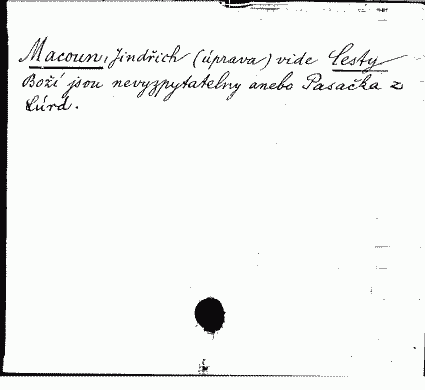 Macoun, Jindřich (úprava) vide Cesty
Boží jsou nevyzpytatelny anebo Pasačka z
Lúrd.